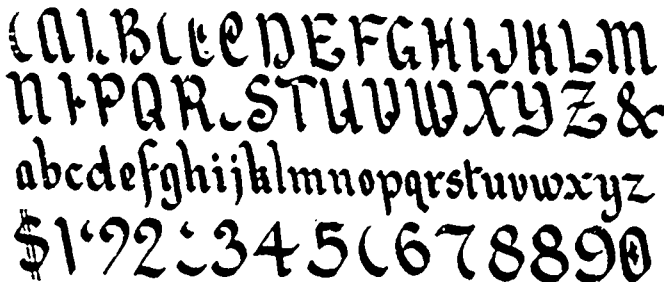 ABCDEFGHIJKLM
NPQRSTUVWXYZ&
abcdefghijklmnopqrstuvwxyz
$12345678890